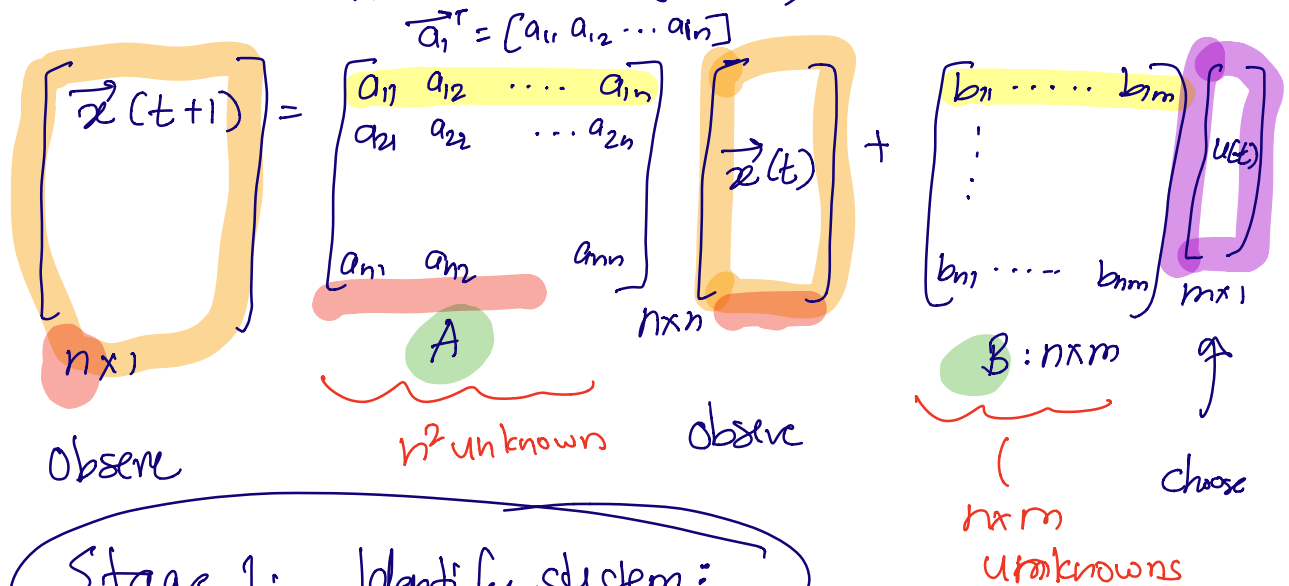 a⃗₁ᵀ = [a₁₁ a₁₂ ... a₁ₙ]
[x⃗(t+1)] = [a₁₁ a₁₂ .... a₁ₙ
a₂₁ a₂₂ ... a₂ₙ
aₙ₁ aₙ₂ aₙₙ] [x⃗(t)] + [b₁₁ ...... b₁ₘ
⋮
bₙ₁ ..... bₙₘ] [u(t)]
n×1 A n×n B : n×m m×1
Observe n² unknown Observe choose
n×m
unknowns
Stage 1: Identify system: